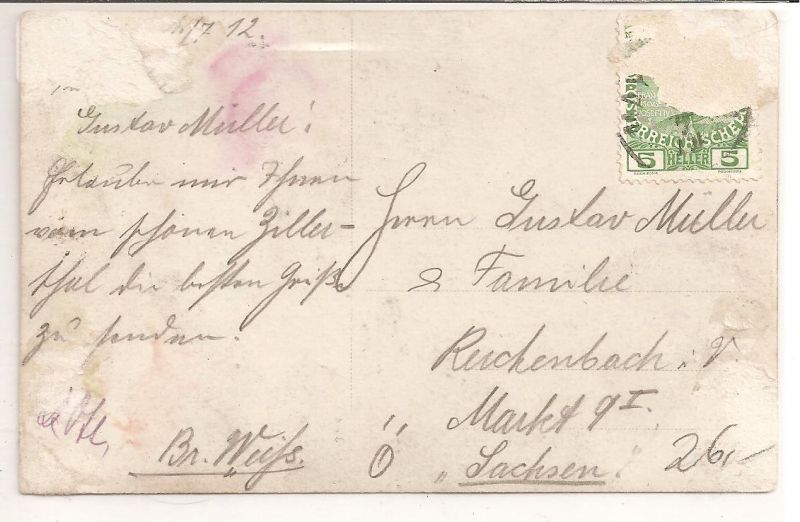 /7 12.
Gustav Müller!
Erlaube mir Ihnen
vom schönen Ziller-
thal die besten Grüße
zu senden.
Br. Weiß.
FRANZ
JOSEF I
ERREICHISCHE
5 HELLER 5
Herrn Gustav Müller
& Familie
Reichenbach i. V
Markt 9 I.
"Sachsen."
26,-